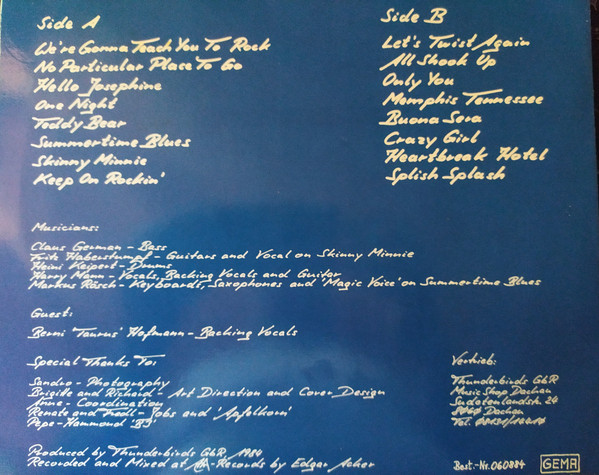 Side A
We're Gonna Teach You To Rock
No Particular Place To Go
Hello Josephine
One Night
Teddy Bear
Summertime Blues
Skinny Minnie
Keep On Rockin'
Side B
Let's Twist Again
All Shook Up
Only You
Memphis Tennessee
Buona Sera
Crazy Girl
Heartbreak Hotel
Splish Splash
Musicians:
Claus German - Bass
Fritz Haberstumpf - Guitars and Vocal on Skinny Minnie
Heini Keipert - Drums
Harry Mann - Vocals, Backing Vocals and Guitar
Markus Räsch - Keyboards, Saxophones and 'Magic Voice' on Summertime Blues
Guest:
Berni 'Taurus' Hofmann - Backing Vocals
Special Thanks To:
Sandro - Photography
Brigitte and Richard - Art Direction and Cover Design
Anne - Coordination
Renate and Fredl - Jobs and 'Apfelkorn'
Pepe - Hammond 'B3'
Produced by Thunderbirds GbR 1984
Recorded and Mixed at Records by Edgar Acher
Vertrieb:
Thunderbirds GbR
Music Shop Dachau
Sudetenlandstr. 24
8060 Dachau
Tel.
Best.-Nr. 060884
GEMA